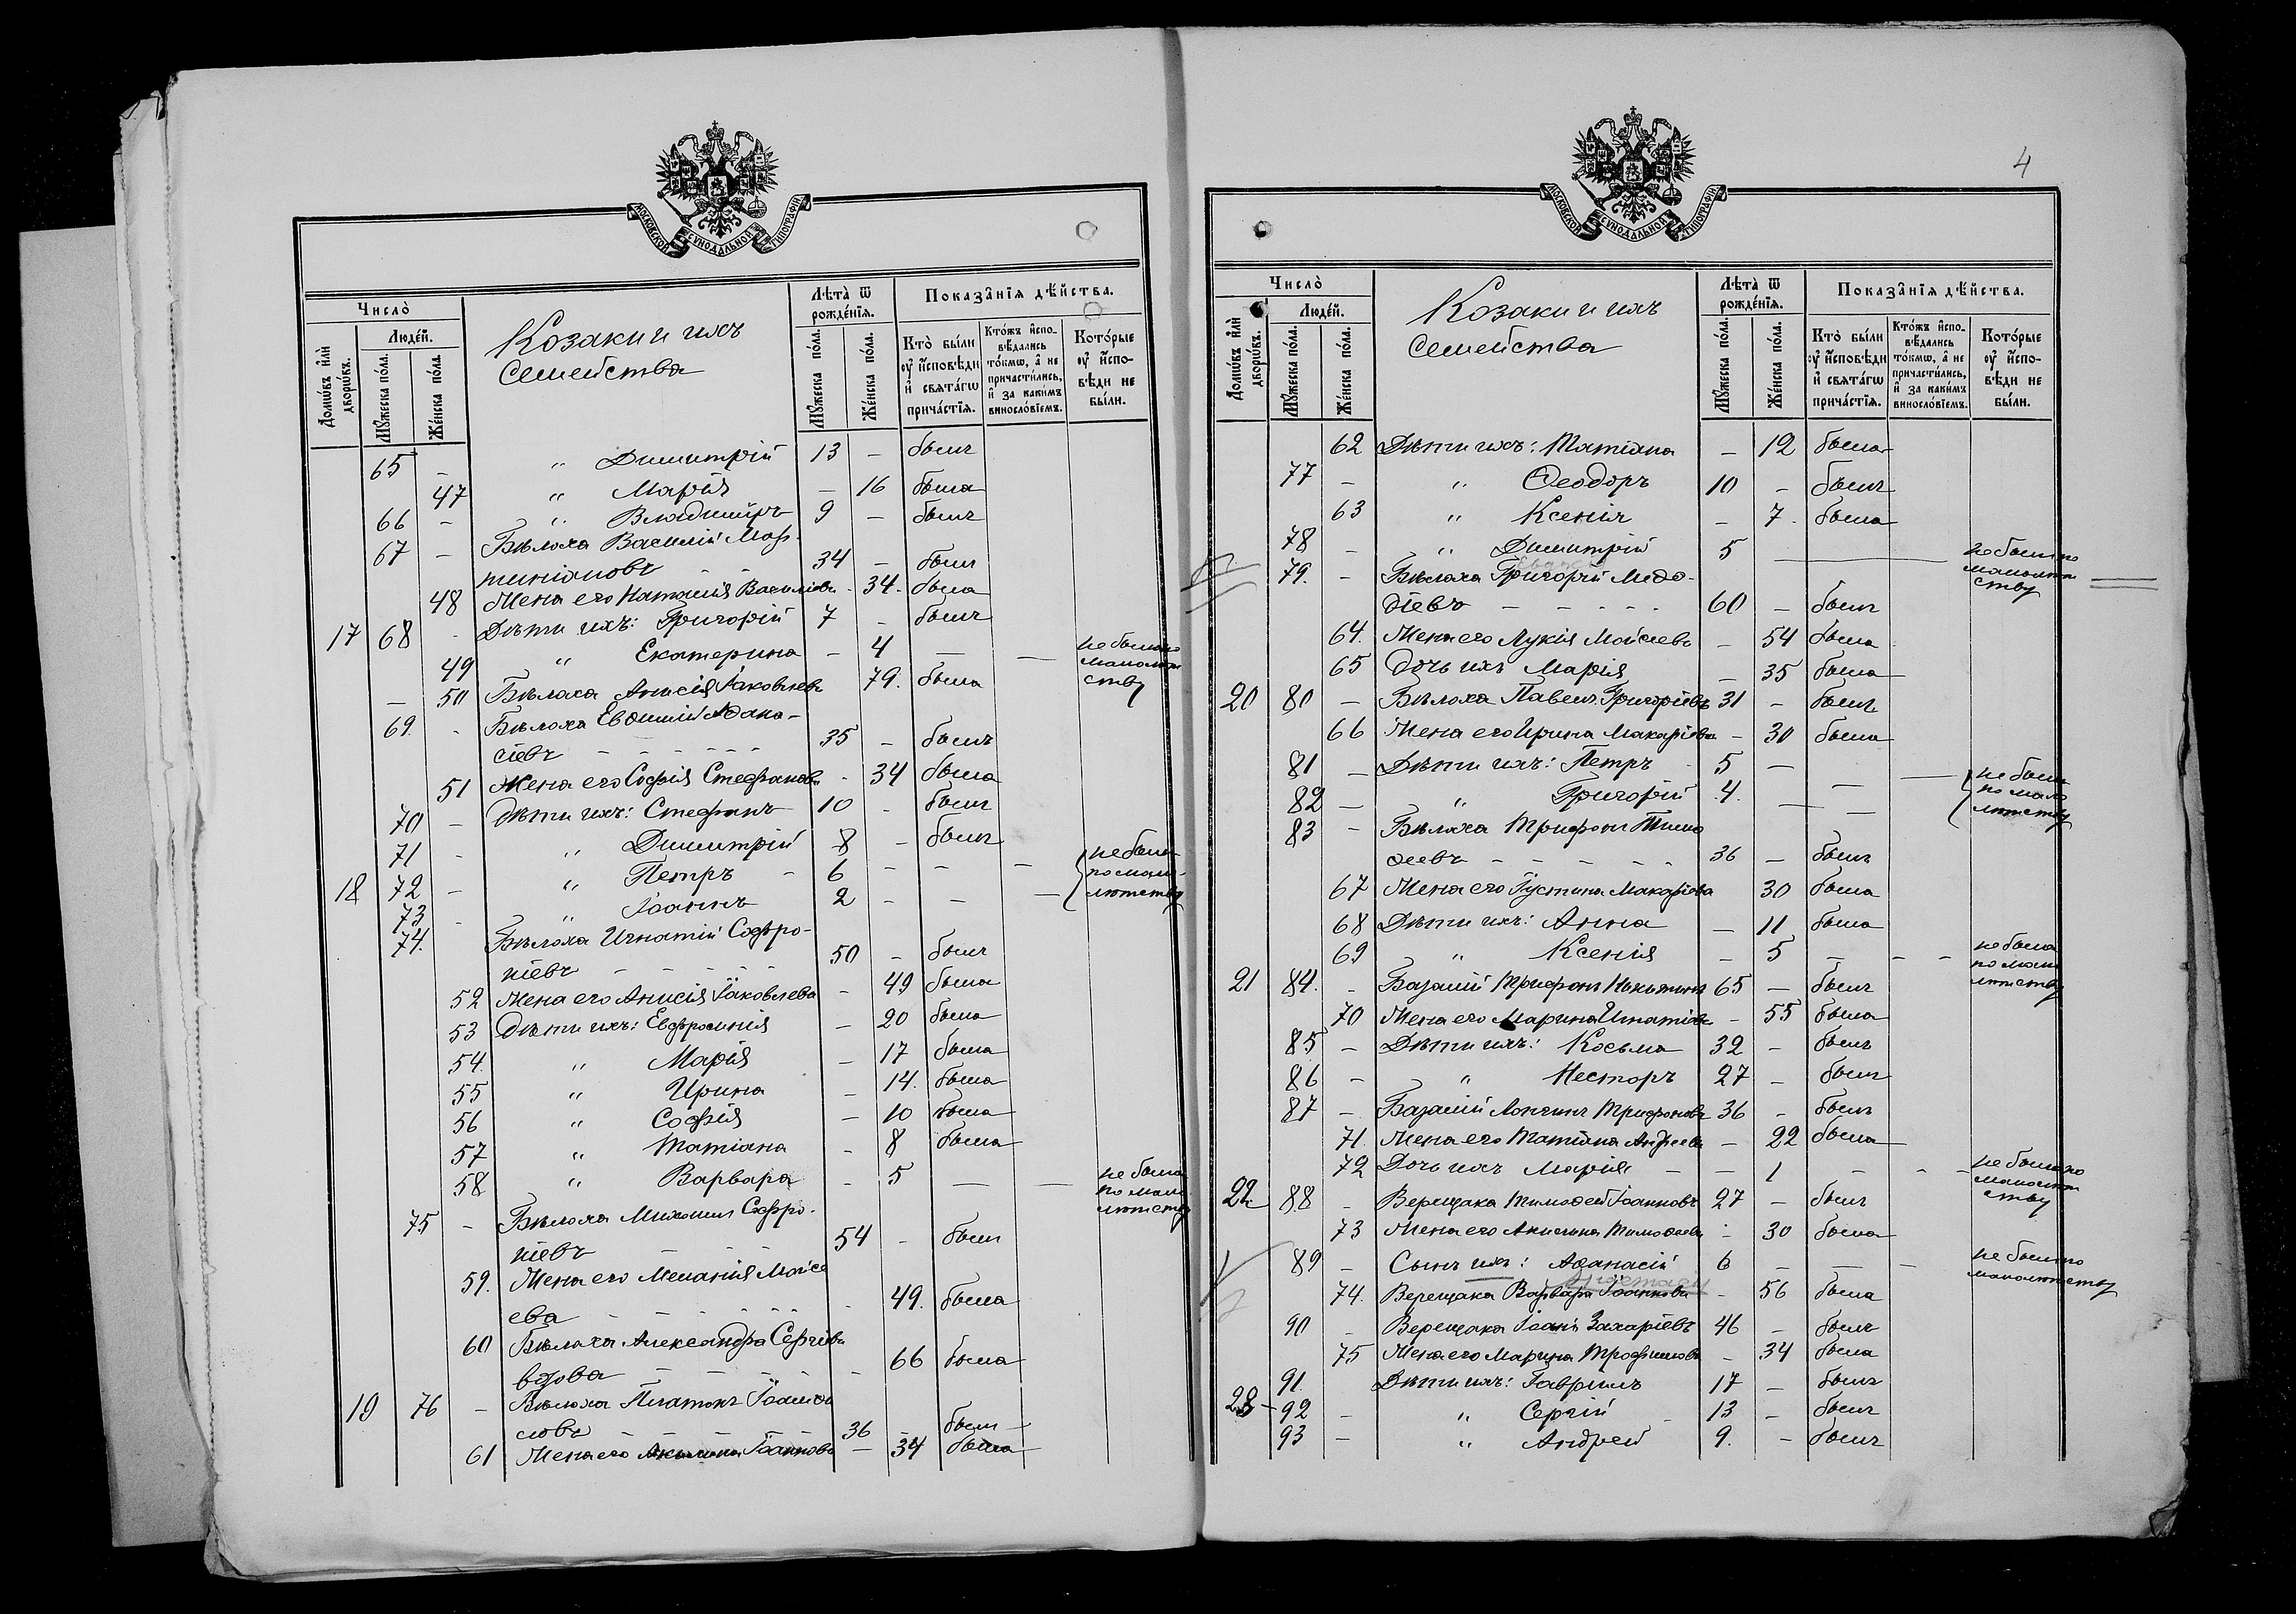 МОСКОВСКОЙ СУНОДАЛЬНОЙ ТИПОГРАФІИ
Число̀
Людéй.
Домѡ́въ и҆лѝ дворѡ́въ.
Мꙋ́жеска по́ла.
Же́нска по́ла.
Козаки и ихъ
Семейства
Лѣта̀ ѿ рожде́нїѧ.
Мꙋ́жеска по́ла.
Же́нска по́ла.
Показа̑нїѧ дѣ́йства.
Кто̀ бы́ли ᲂу҆ и҆сповѣ́ди и҆ свѧта́гѡ прича́стїѧ.
Кто́жъ и҆сповѣ́дались то́кмѡ, а҆ не причасти́лись, и҆ за каки́мъ винослѡ́вїемъ.
Кото́рые ᲂу҆ и҆сповѣ́ди не бы́ли.
65 - " Димитрій 13 - былъ
47 " Марія - 16 была
66 - " Владиміръ 9 - былъ
67 - Бѣлоха Василій Мар-
тиніановъ - - 34 - былъ
48 Жена его Наталія Васильева - 34. была
17 68 - Дѣти ихъ: Григорій 7 - былъ
49 " Екатерина - 4 — — не была по малолѣт
ству
- 50 Бѣлоха Анисія Іаковлева 79. была
69. - Бѣлоха Евѳимій Аѳана-
сіевъ - - - - - - 35 - былъ
51 Жена его Софія Стефанова - 34 была
70 - Дѣти ихъ: Стефанъ 10 - былъ
71 - " Димитрій 8 - былъ
18 72 - " Петръ - 6 - - - не были
по мало-
лѣтству
73 - " Іоаннъ 2 - - -
74. Бѣлоха Игнатій Софро-
ніевъ - - - - - 50 - былъ
52 Жена его Анисія Іаковлева - 49 была
53 Дѣти ихъ: Евфросинія - 20 была
54. " Марія - 17 была
55 " Ирина - 14. была
56 " Софія - 10 была
57 " Татіана - 8 была
58 " Варвара - 5 — — не была
по мало
лѣтству
75 - Бѣлоха Михаилъ Софро-
ніевъ - - - 54 - былъ
59. Жена его Меланія Моисе
ева - - - - - - - 49. была
60 Бѣлоха Александра Сергіева
вдова - - - - - 66 была
19 76 - Бѣлоха Платонъ
36 - былъ -
61 Жена его Акилина Іоаннова - 34 была
4
МОСКОВСКОЙ СУНОДАЛЬНОЙ ТИПОГРАФІИ
Число̀
Людéй.
Домѡ́въ и҆лѝ дворѡ́въ.
Мꙋ́жеска по́ла.
Же́нска по́ла.
Козаки и ихъ
Семейства
Лѣта̀ ѿ рожде́нїѧ.
Мꙋ́жеска по́ла.
Же́нска по́ла.
Показа̑нїѧ дѣ́йства.
Кто̀ бы́ли ᲂу҆ и҆сповѣ́ди и҆ свѧта́гѡ прича́стїѧ.
Кто́жъ и҆сповѣ́дались то́кмѡ, а҆ не причасти́лись, и҆ за каки́мъ винослѡ́вїемъ.
Кото́рые ᲂу҆ и҆сповѣ́ди не бы́ли.
62 Дѣти ихъ: Татіана - 12 была
77 - " Ѳеодоръ 10 - былъ
63 " Ксенія - 7. была
78 - " Димитрій 5 — — не былъ по
малолѣт
ству
79. - Бѣлоха Григорій Меѳо-
діевъ - - - - 60 - былъ
64. Жена его Лукія Моисеева - 54 была
65 Дочь ихъ Марія - 35 была
20 80 - Бѣлоха Павелъ Григоріевъ 31 - былъ
66 Жена его Ирина Макаріева - 30 была
81 - Дѣти ихъ: Петръ - 5 — — не были
по мало
лѣтству
82 - " Григорій 4. — —
83 - Бѣлоха Трифонъ Тимо
ѳеевъ - - - - - 36 - былъ
67 Жена его Іустина Макаріева 30 была
68 Дѣти ихъ: Анна - 11 была
69 " Ксенія - 5 - - - не была
по мало
лѣтству
21 84. - Базалій Трифонъ Никитинъ 65 - былъ
70 Жена его Марина Игнатіева - 55 была
85 - Дѣти ихъ: Косьма 32 - былъ
86 - " Несторъ 27 - былъ
87 - Базалій Логгинъ Трифоновъ 36 - былъ
71. Жена его Татіана Андреева - 22 была
72 Дочь ихъ Марія - - 1 - - - не была по
малолѣт
ству
22 88 - Верещака Тимоѳей Іоанновъ 27 - былъ
73 Жена его Акилина Тимоѳеева - 30 была
89 - Сынъ ихъ: Аѳанасій 6 - - - не былъ по
малолѣтству
74. Верещака Варвара Іоаннова - 56 была
90 - Верещака Іоаннъ Захаріевъ 46 - былъ
75 Жена его Марина Трофимова - 34 была
91. Дѣти ихъ: Гавріилъ 17 - былъ
23 - 92 - " Сергій - 13 - былъ
93 - " Андрей 9. - былъ